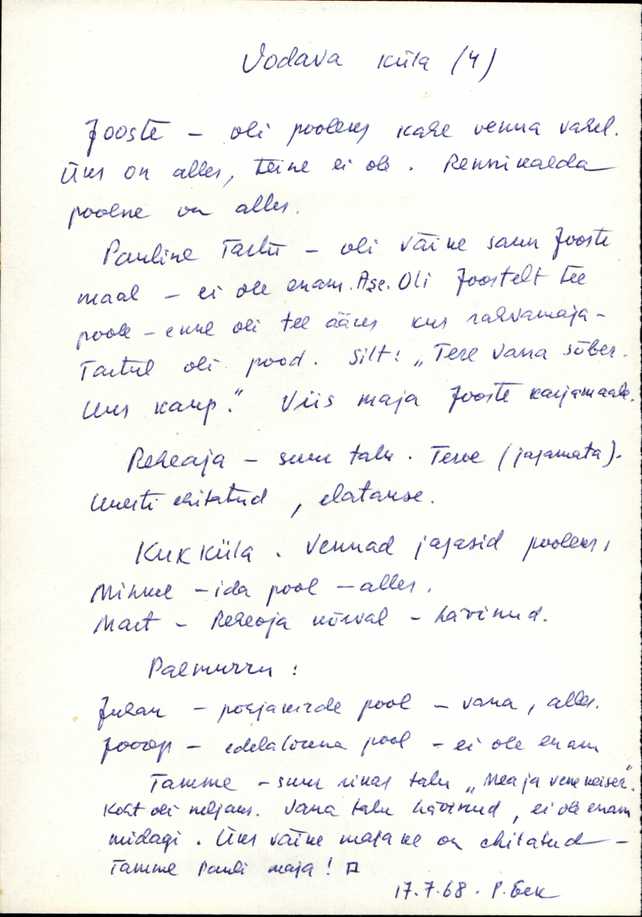 Vodava küla (4)
Jooste – oli pooleks kahe venna vahel.
Üks on alles, teine ei ole. Rennikalda
poolne on alles.
Pauline Tartu – oli väike saun Jooste
maal – ei ole enam. Ase. Oli Joostelt tee
poole – enne oli tee ääres kus rahvamaja –
Tartul oli pood. Silt: „Tere vana sõber.
Uus kaup." Viis maja Jooste karjamaale.
Reheaja – suur talu. Terve (jagamata).
Uuesti ehitatud, elatakse.
Kukküla. Vennad jagasid pooleks,
Mihkel – ida pool – alles.
Mart – Reheaja kõrval – hävinud.
Palmurru:
Juhan – põhjakirde pool – vana, alles.
Joosep – edelalõuna pool – ei ole enam
Tamme – suur rikas talu „Mea ja vene keiser".
Koht oli neljaks. Vana talu hävinud, ei ole enam
midagi. Üks väike majake on ehitatud –
Tamme Pauli maja!
17.7.68. P.